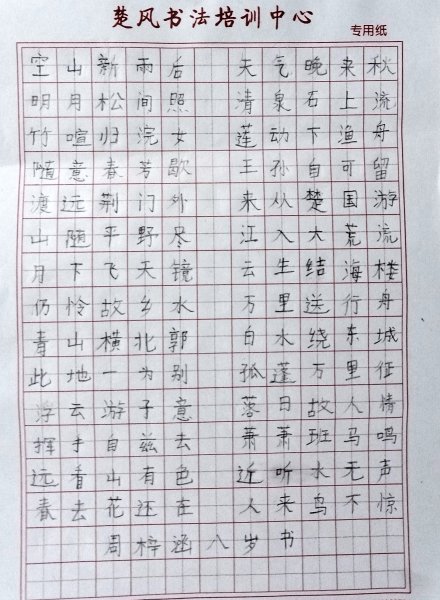 楚风书法培训中心
专用纸
空山新雨后 天气晚来秋
明月松间照 清泉石上流
竹喧归浣女 莲动下渔舟
随意春芳歇 王孙自可留
渡远荆门外 来从楚国游
山随平野尽 江入大荒流
月下飞天镜 云生结海楼
仍怜故乡水 万里送行舟
青山横北郭 白水绕东城
此地一为别 孤蓬万里征
浮云游子意 落日故人情
挥手自兹去 萧萧班马鸣
远看山有色 近听水无声
春去花还在 人来鸟不惊
周梓涵八岁书